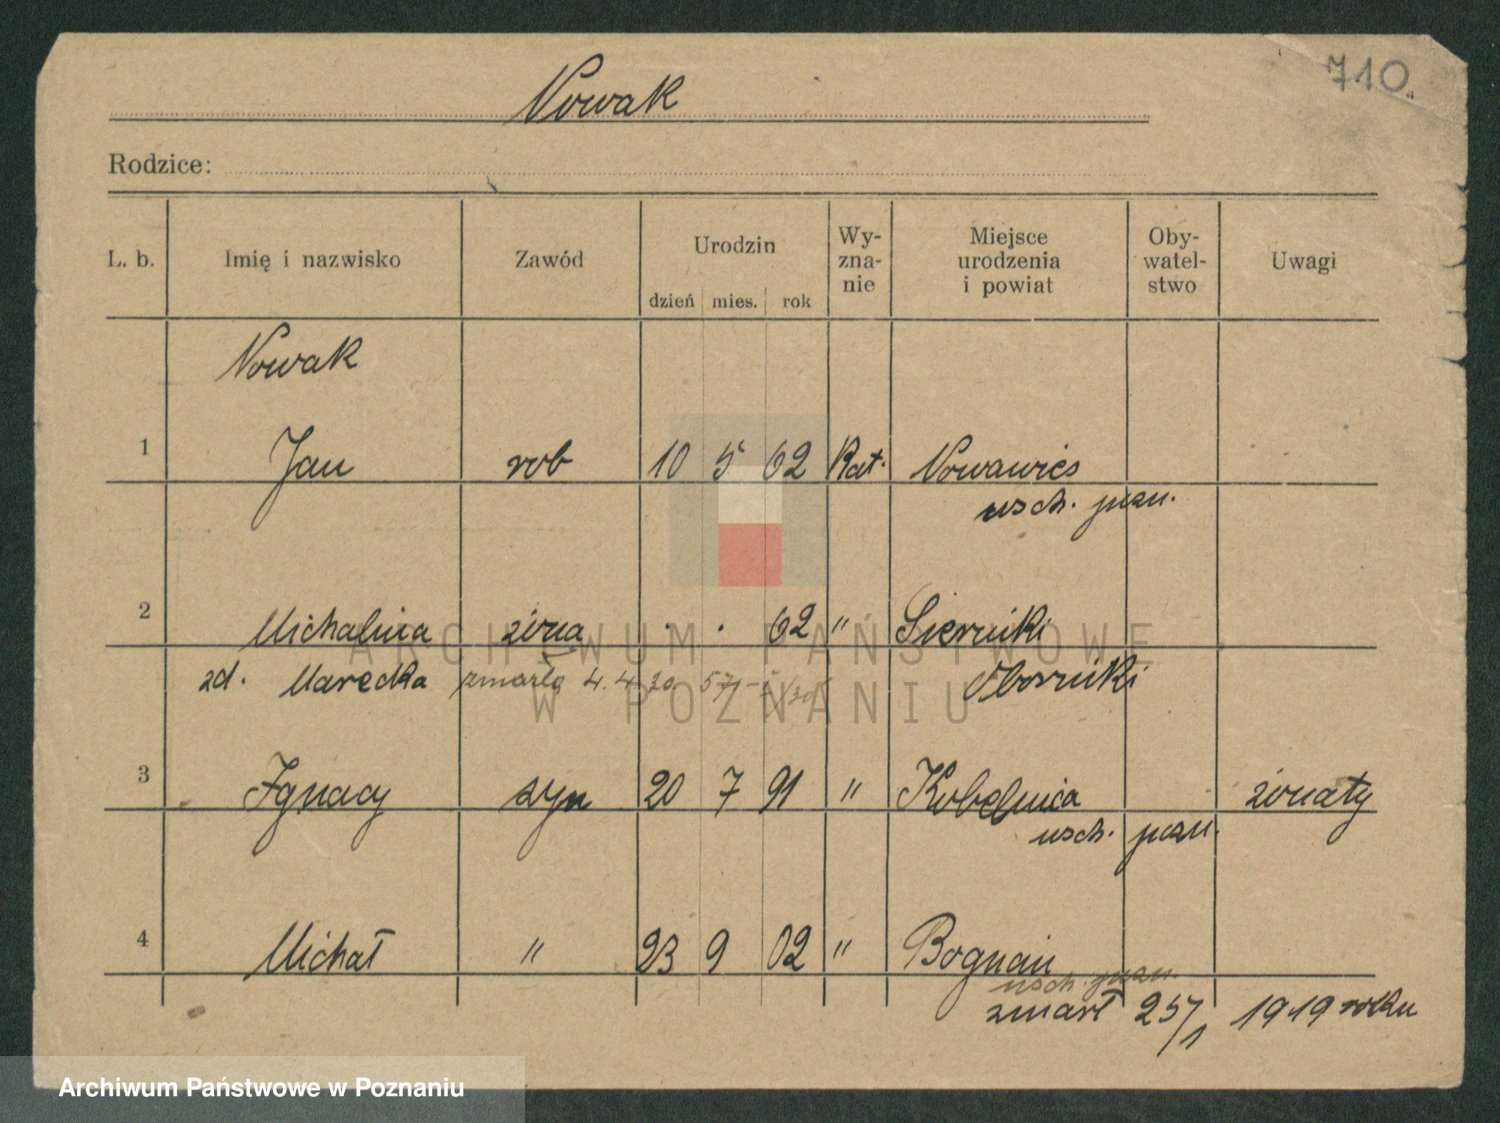 710.
Nowak
Rodzice:
L. b. Imię i nazwisko Zawód Urodzin dzień mies. rok Wy-zna-nie Miejsce urodzenia i powiat Oby-watel-stwo Uwagi
Nowak
1 Jan rob 10 5 62 Kat. Nowawieś
wsch. pozn.
2 Michalina żona . . 62 " Sierniki
zd. Marecka zmarła 4.4 30 Oborniki
3 Ignacy syn 20 7 91 " Kobelnica żonaty
wsch. pozn.
4 Michał " 23 9 02 "
wsch. pozn.
zmarł 25/1 1919 roku
ARCHIWUM PAŃSTWOWE
W POZNANIU
Archiwum Państwowe w Poznaniu